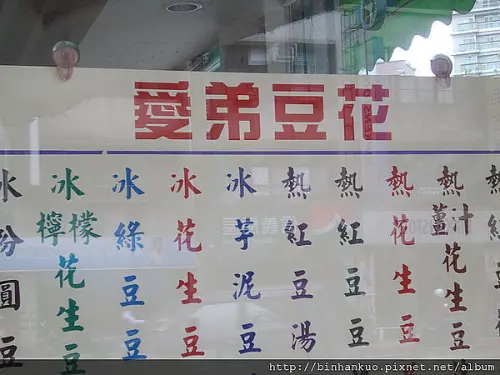 愛弟豆花
冰粉圓豆
冰檸檬花生豆
冰綠豆豆
冰花生豆
冰芋泥豆
熱紅豆湯
熱紅豆豆
熱花生豆
熱薑汁花生豆
http://binhankuo.pixnet.net/album